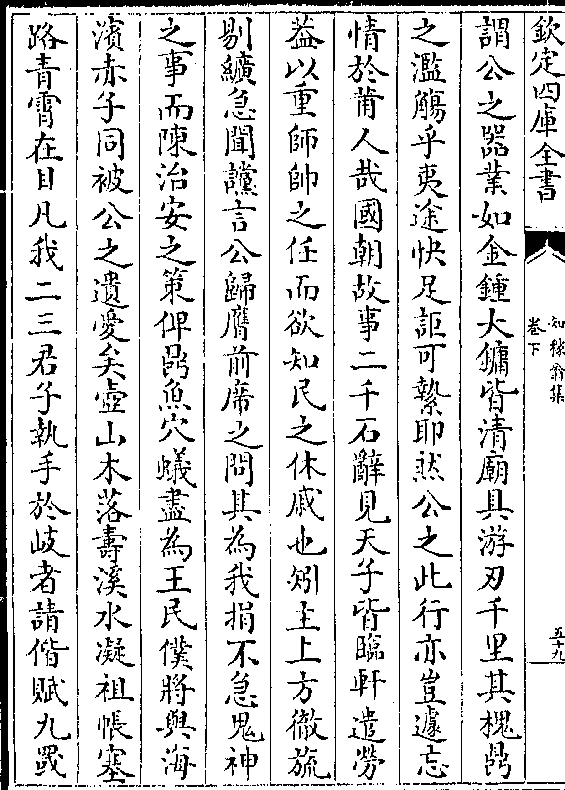 欽定四庫全書
知稼翁集
卷下
五十九
謂公之器業如金鍾大鏞皆清廟具游刃千里其槐鼎
之濫觴乎夷途快足詎可縶耶然公之此行亦豈遽忘
情於莆人哉國朝故事二千石辭見天子皆臨軒遣勞
葢以重師帥之任而欲知民之休戚也矧主上方徹旒
剔纊急聞讜言公歸膺前席之問其為我捐不急鬼神
之事而陳治安之策俾鼎魚穴蟻盡為王民僕將與海
濱赤子同被公之遺愛矣壺山木落壽溪水凝祖帳塞
路青霄在目凡我二三君子執手於岐者請偕賦九罭